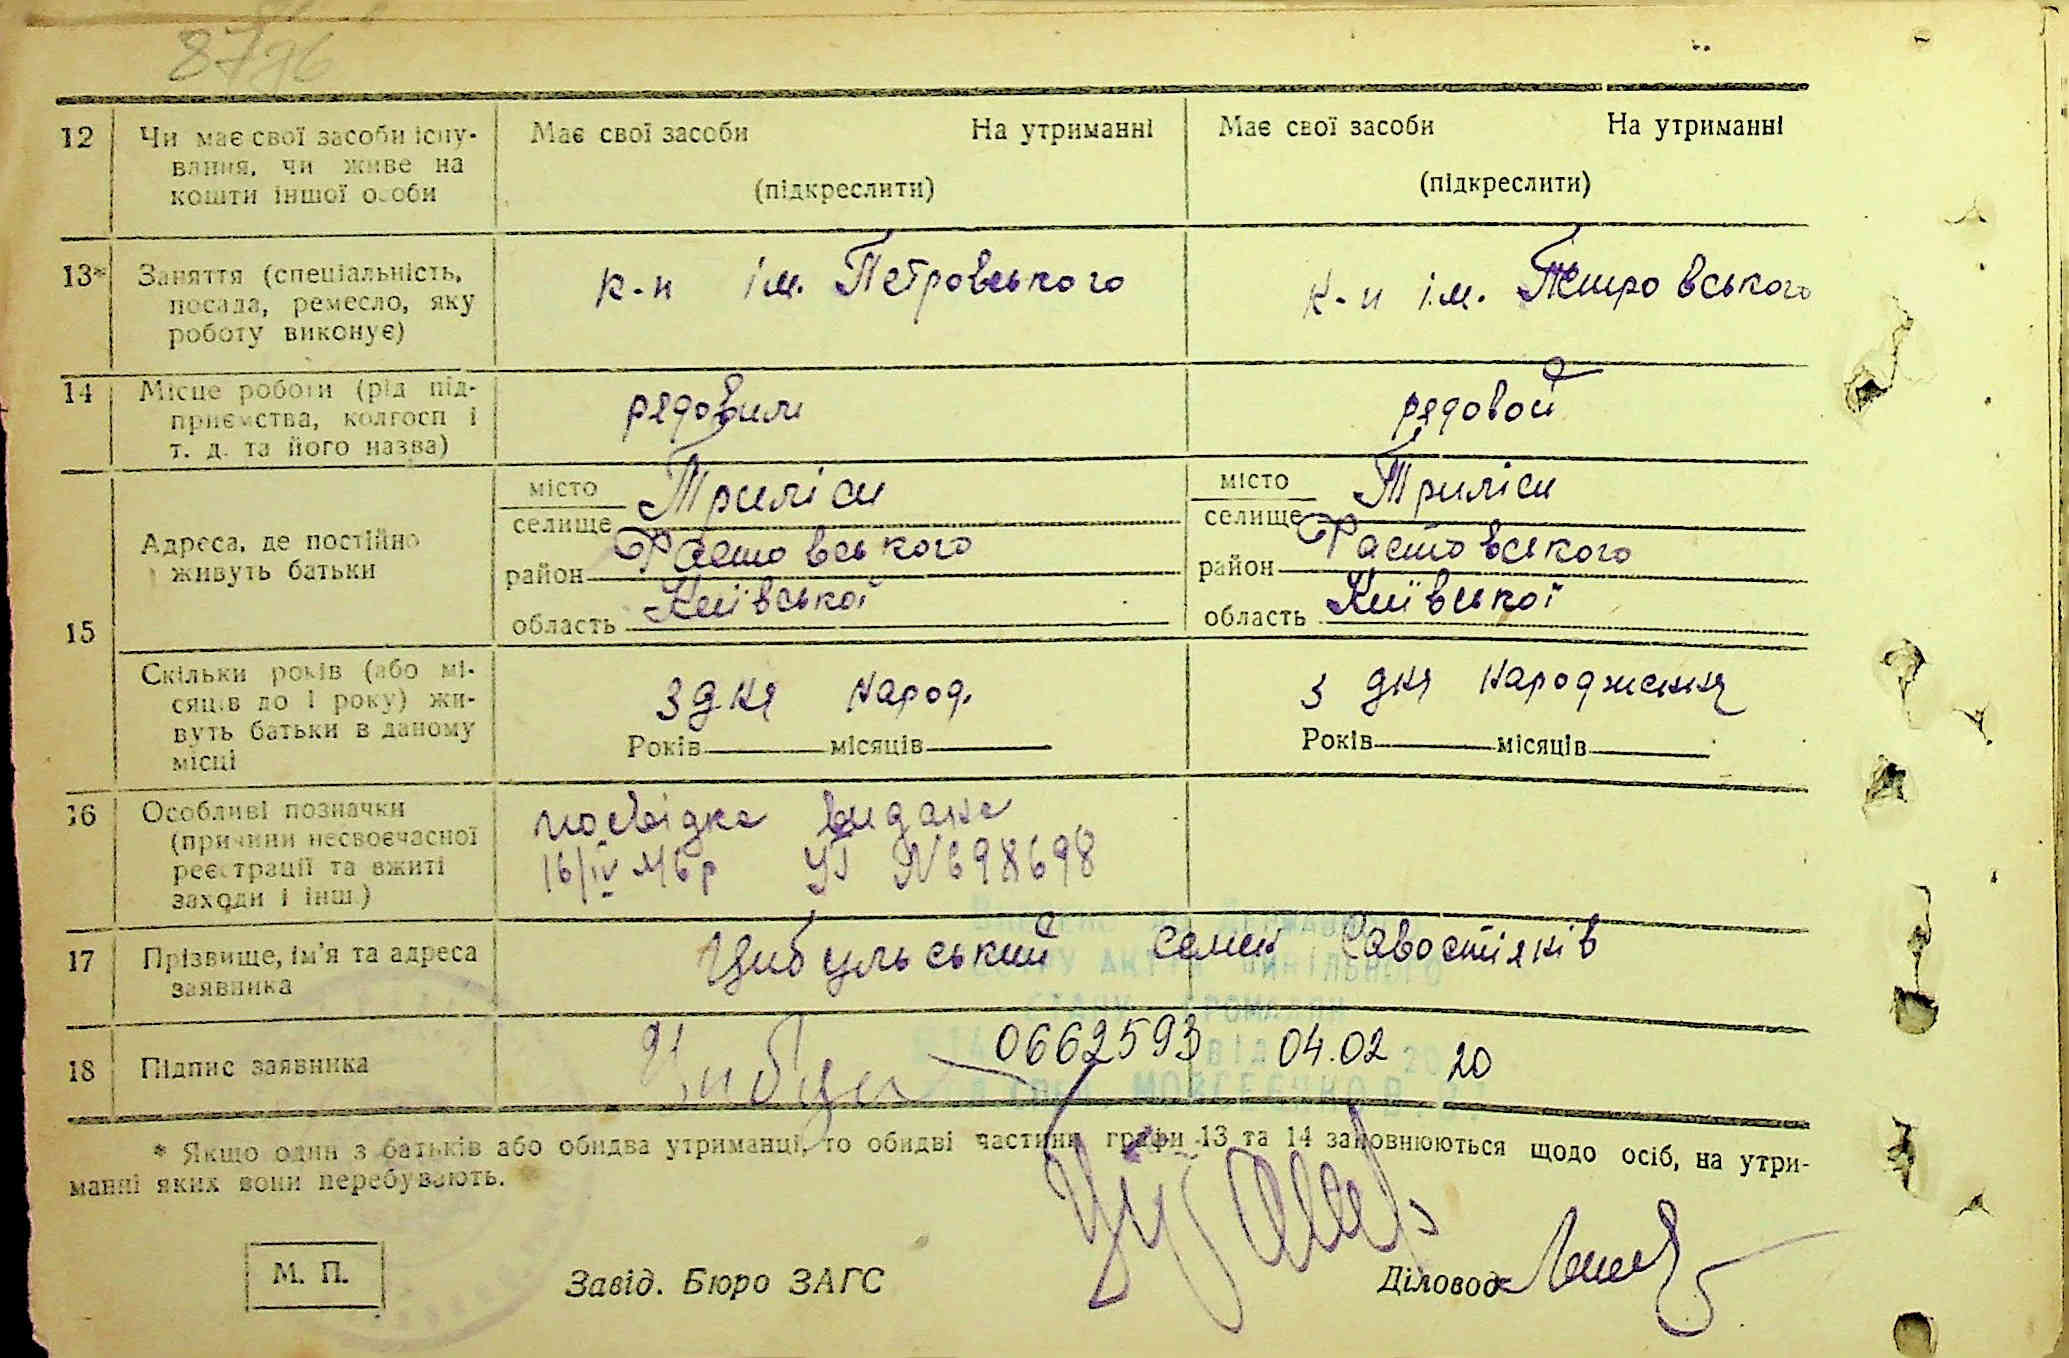 12 Чи має свої засоби існу- Має свої засоби На утриманні Має свої засоби На утриманні
вання, чи живе на
кошти іншої особи (підкреслити) (підкреслити)
13* Заняття (спеціальність, к-н ім. Петровського к-н ім. Петровського
посада, ремесло, яку
роботу виконує)
14 Місце роботи (рід під- рядовим рядовой
приємства, колгосп і
т. д. та його назва)
15 Адреса, де постійно
живуть батьки
місто Триліси місто Триліси
селище селище
район Фастовського район Фастовського
область Київської область Київської
Скільки років (або мі- з дня народ. з дня народження
сяців до 1 року) жи-
вуть батьки в даному Років місяців Років місяців
місці
16 Особливі позначки посвідка видана
(причини несвоєчасної 16/IV УБ N 698698
реєстрації та вжиті
заходи і інш.)
17 Прізвище, ім'я та адреса Цибульський Семен Савостіянів
заявника
АКТІВ ЦИВІЛЬНОГО
СТАНУ ГРОМАДЯН
18 Підпис заявника Цибул 0662593 від 04.02 2020
* Якщо один з батьків або обидва утриманці, то обидві частини графи 13 та 14 заповнюються щодо осіб, на утри-
манні яких вони перебувають.
М. П. Завід. Бюро ЗАГС Діловод